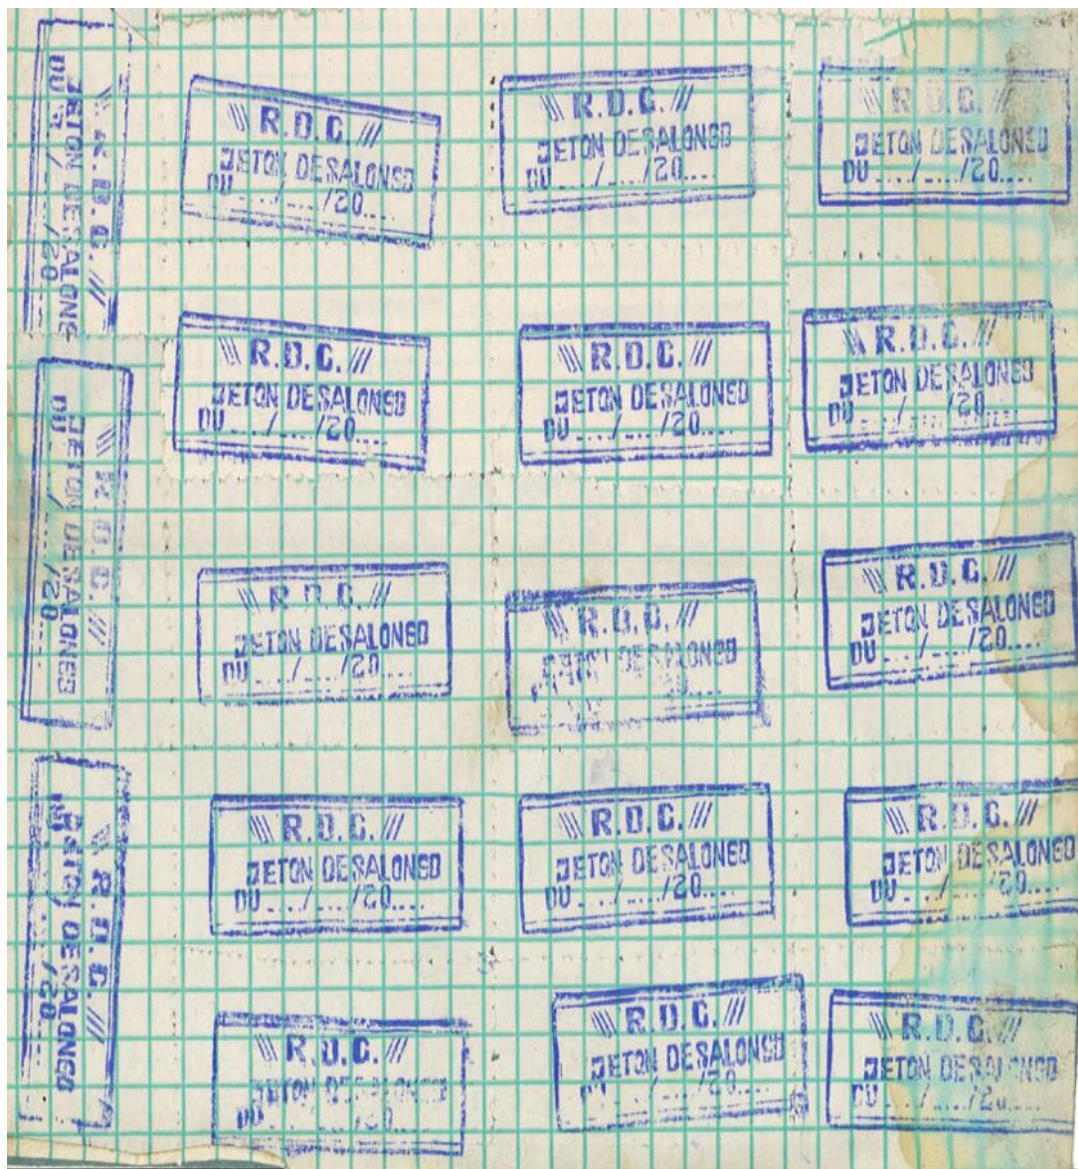 \\\ R.D.C. ///
JETON DESALONG
DU ..../..../20....
\\\ R.D.C. ///
JETON DESALONGO
DU ..../..../20....
\\\ R.D.C. ///
JETON DESALONGO
DU ..../..../20....
\\\ R.D.C. ///
JETON DESALONGO
DU ..../..../20....
\\\ R.D.C. ///
JETON DESALONGO
DU ..../..../20....
\\\ R.D.C. ///
JETON DESALONGO
DU ..../..../20....
\\\ R.D.C. ///
JETON DESALONGO
DU ..../..../20....
\\\ R.D.C. ///
JETON DESALONGO
DU ..../..../20....
\\\ R.D.C. ///
JETON DESALONGO
DU ..../..../20....
\\\ R.D.C. ///
JETON DESALONGO
\\\ R.D.C. ///
JETON DESALONGO
DU ..../..../20....
\\\ R.D.C. ///
JETON DESALONGO
DU ..../..../20....
\\\ R.D.C. ///
JETON DESALONGO
DU ..../..../20....
\\\ R.D.C. ///
JETON DESALONGO
DU ..../..../20....
\\\ R.D.C. ///
JETON DESALONGO
DU ..../..../20....
\\\ R.D.C. ///
JETON DESALONGO
DU ..../..../20....
\\\ R.D.C. ///
JETON DESALONGO
DU ..../..../20....
\\\ R.D.C. ///
JETON DESALONGO
DU ..../..../20....